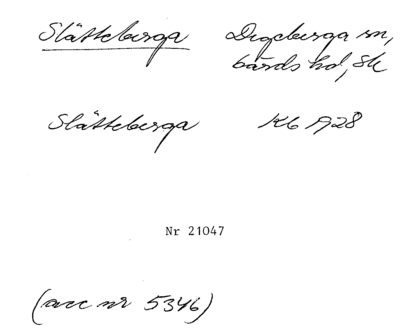 Slätteberga Degeberga sn,
Gärds hd, Sk
Slätteberga Kb 1928
Nr 21047
(acc nr 5346)